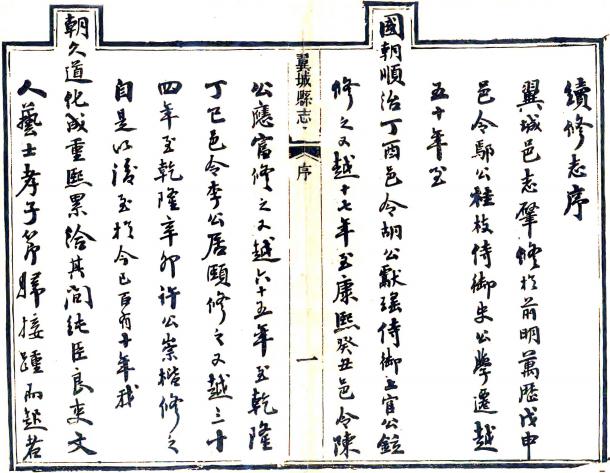 續修志序
翼城邑志肇修於前明萬歷戊申
邑令鄢公桂枝侍御史公學遷越
五十年至
國朝順治丁酉邑令胡公獻瑤侍御上官公鉝
修之又越十七年至康熙癸丑邑令陳
翼城縣志
序
一
公應富修之又越六十五年至乾隆
丁巳邑令李公居頤修之又越三十
四年至乾隆辛卯許公崇楷修之
自是以後至於今已百有十年我
朝久道化成重熙累給其間純臣良吏文
人藝士孝子節婦接踵而起若